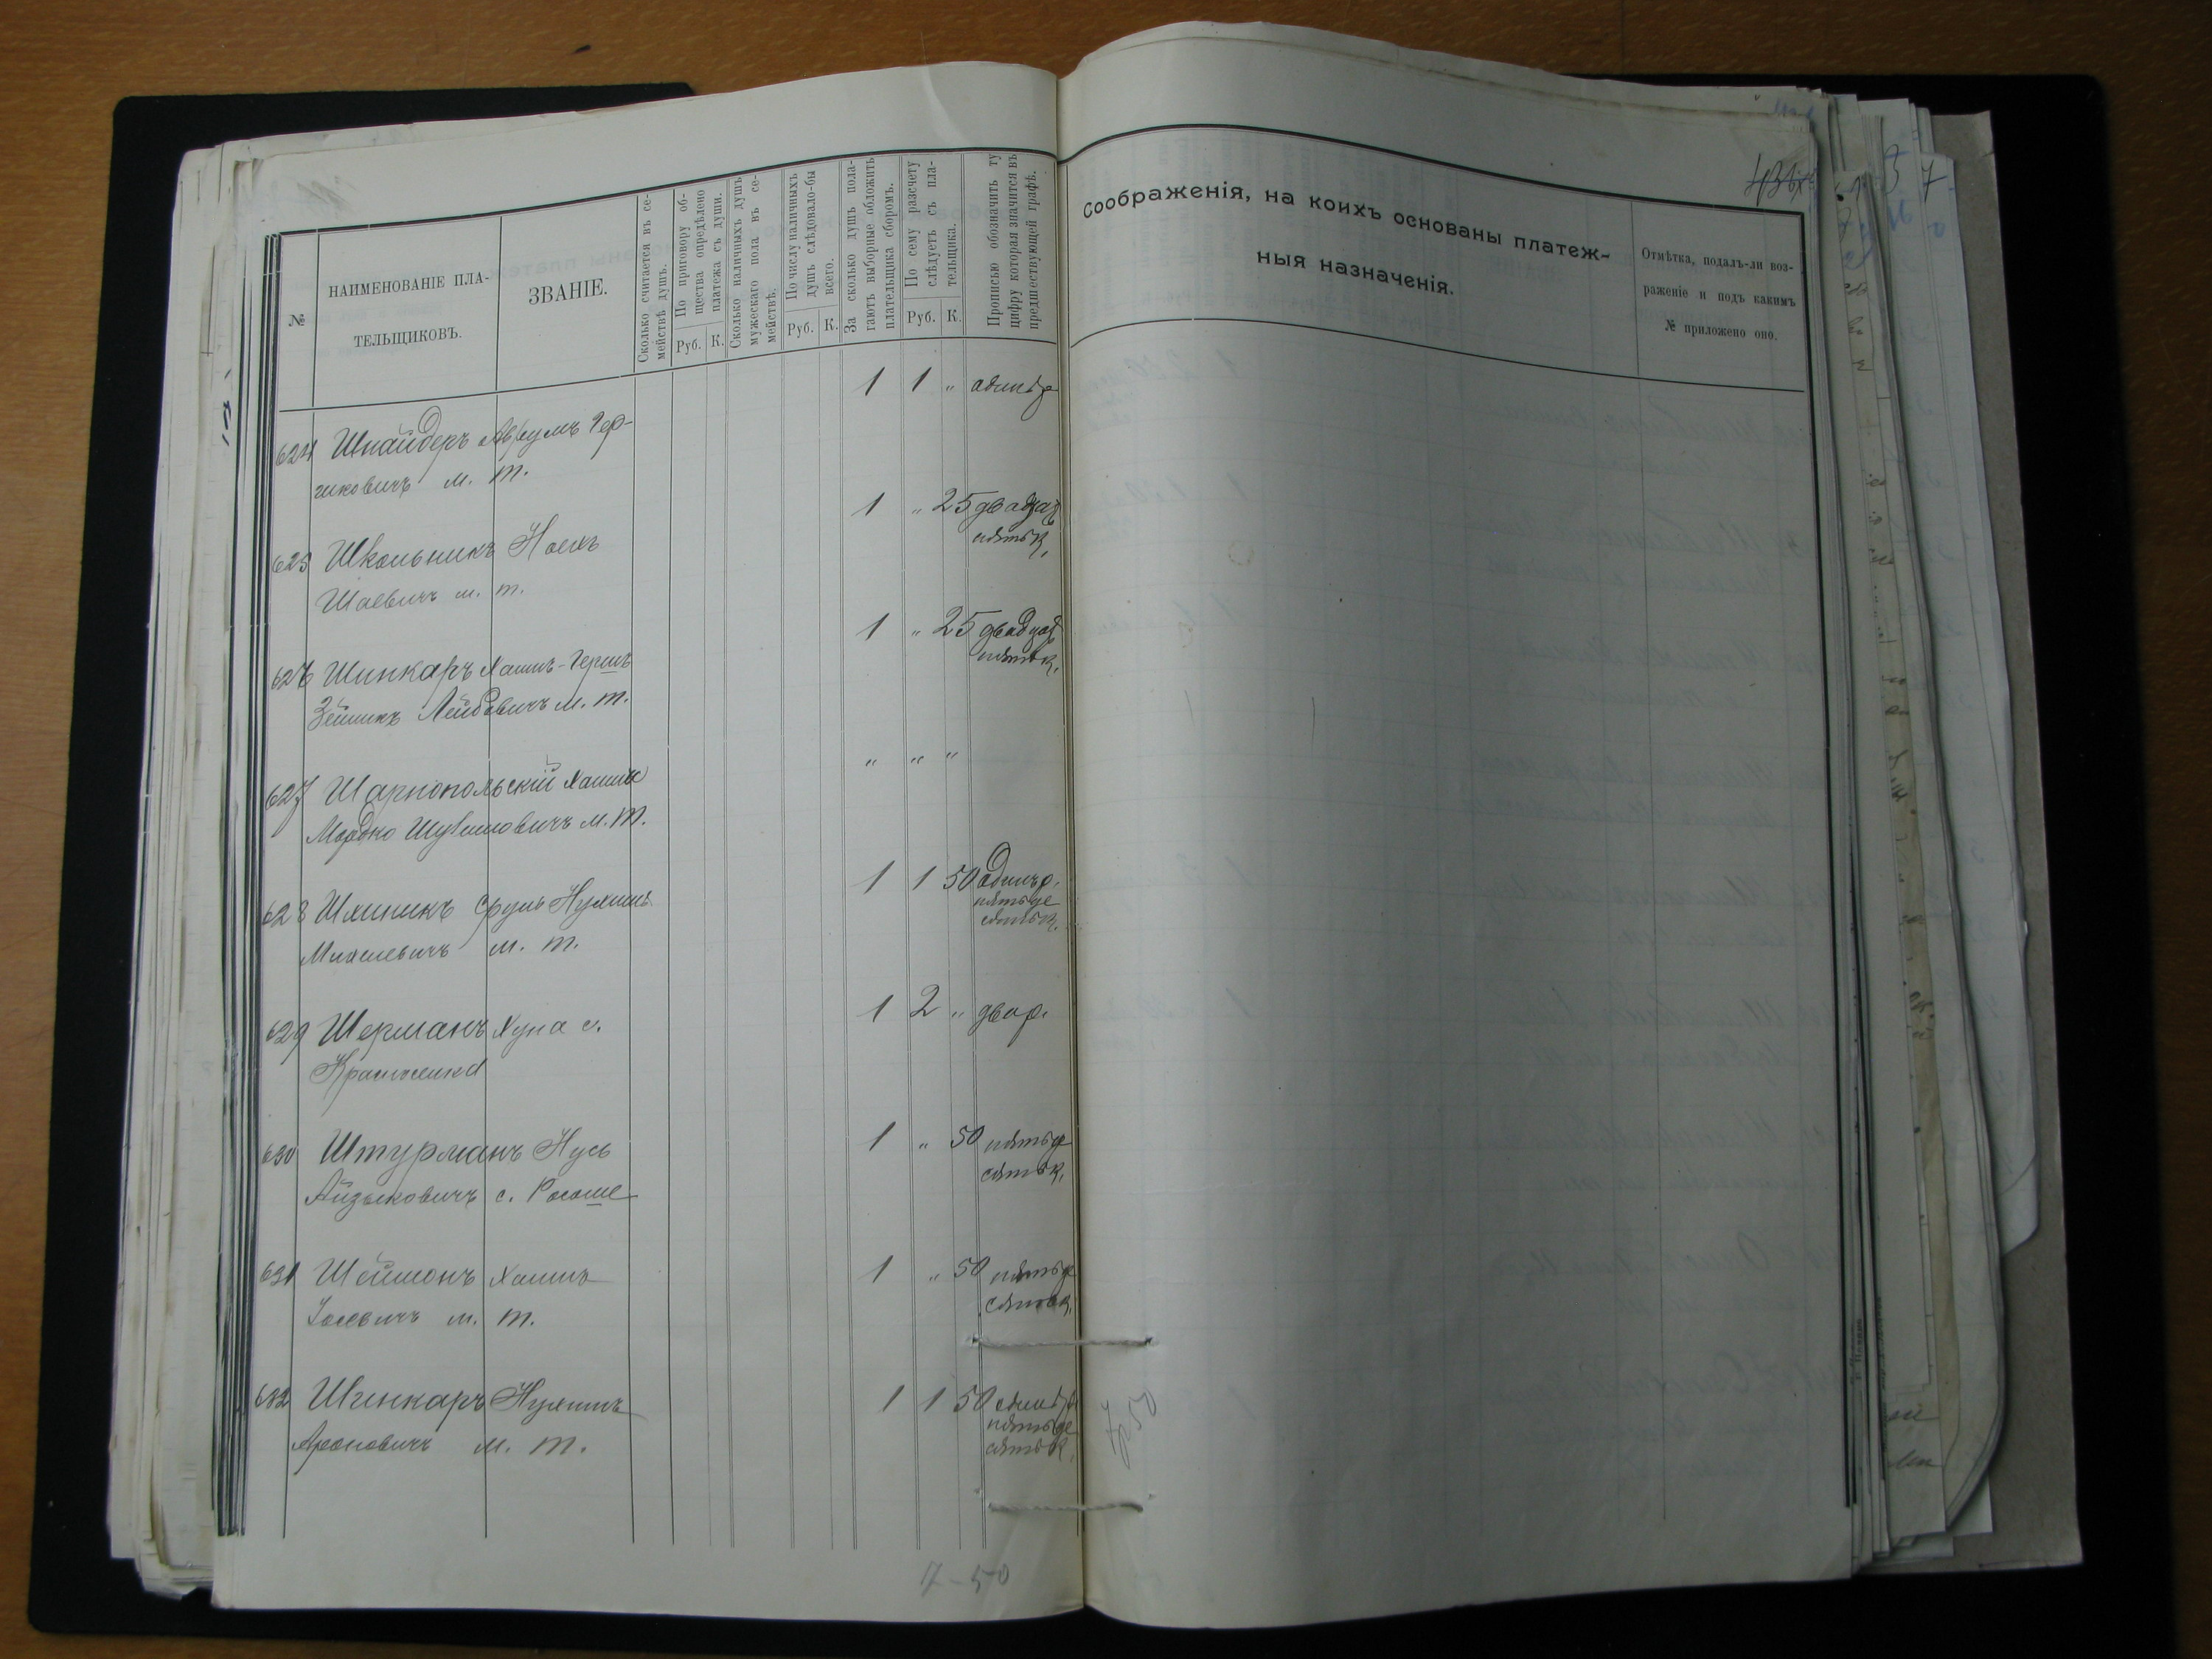 №
НАИМЕНОВАНІЕ ПЛА-
ТЕЛЬЩИКОВЪ.
ЗВАНІЕ.
Сколько считается въ се-
мействѣ душъ.
По приговору об-
щества опредѣлено
платежа съ души.
Руб. К.
Сколько наличныхъ душъ
мужескаго пола въ се-
мействѣ.
По числу наличныхъ
душъ слѣдовало-бы
всего.
Руб. К.
За сколько душъ пола-
гаютъ выборные обложить
плательщика сборомъ.
По сему разсчету
слѣдуетъ съ пла-
тельщика.
Руб. К.
Прописью обозначить ту
цифру которая значится въ
предшествующей графѣ.
624 Шнайдеръ Аврумъ Гер-
шковичъ м. т.
1 1 " одинъ р
625 Школьникъ Ноехъ
Шаевичъ м. т.
1 " 25 двадцать
пять к.
626 Шинкаръ Хаимъ-Гершъ
Зейликъ Лейбовичъ м. т.
1 " 25 двадцать
пять к.
627 Шарнопольскій Хаимъ
Мордко Шулимовичъ м. т.
" " "
628 Шлиникъ Сруль Нухимъ
Михелевичъ м. т.
1 1 50 одинъ р.
пятьде
сять к.
629 Шерманъ Хуна с.
1 2 " два р.
630 Штурманъ Нусь
Айзыковичъ с. Росоше
1 " 50 пятьде
сять к.
631 Шеймонъ Хаимъ
м. т.
1 " 50 пятьде
сять к.
632 Шинкаръ Нухимъ
Ароновичъ м. т.
1 1 50 одинъ р
пятьде
сять к.
7-50
Соображенія, на коихъ основаны платеж-
ныя назначенія.
Отмѣтка, подалъ-ли воз-
раженіе и подъ какимъ
№ приложено оно.
7р50